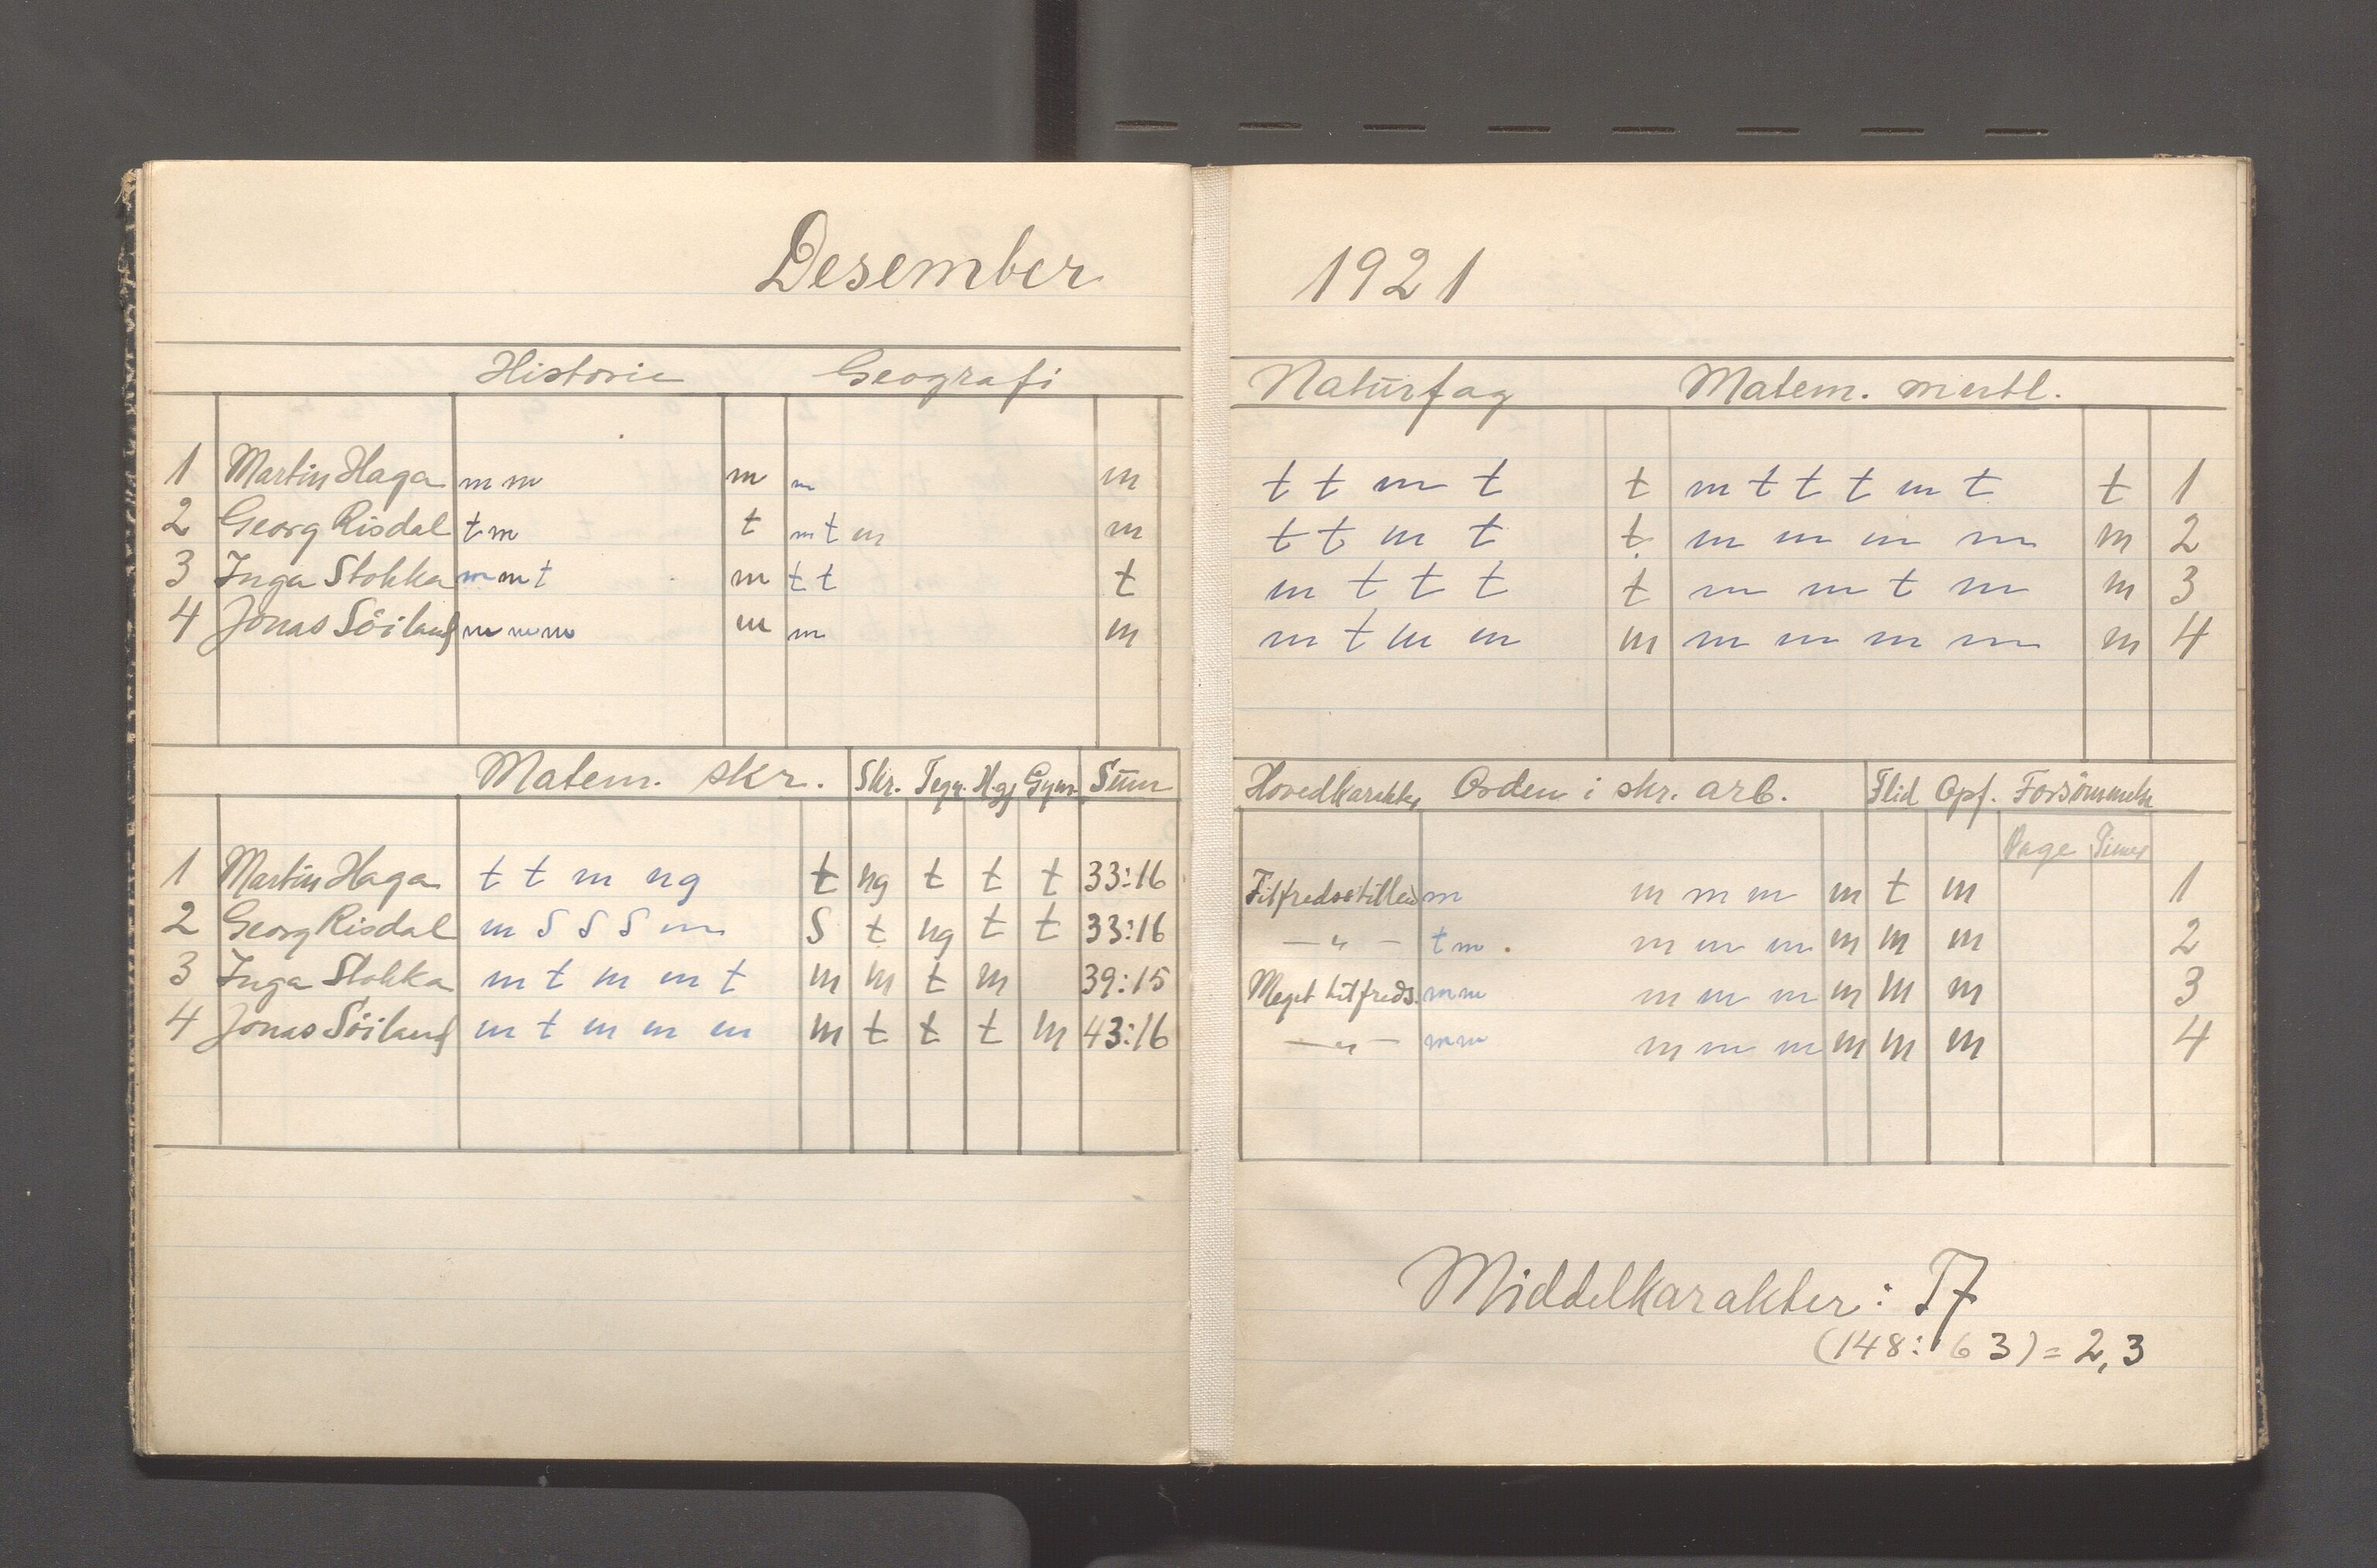 Desember
Historie Geografi
1 Martin Haga m m m m m
2 Georg Risdal t m t m t m m
3 Inga Stokka m m t m t t t
4 Jonas Söiland m m m m m m
Matem. skr. Skr. Tegn. H.gj Gymn Sum
1 Martin Haga t t m ng t ng t t t 33:16
2 Georg Risdal m S S S m S t ng t t 33:16
3 Inga Stokka m t m m t m m t m 39:15
4 Jonas Söiland m t m m m m t t t m 43:16
1921
Naturfag Matem. muntl.
t t m t t m t t t m t t 1
t t m t t m m m m m 2
m t t t t m m t m m 3
m t m m m m m m m m 4
Hovedkarakter Orden i skr. arb. Flid Opf. Forsömmelse
Dage Timer
Tilfredsstillen m m m m m t m 1
— " — t m . m m m m m m 2
Meget tilfreds. m m m m m m m m 3
— " — m m m m m m m m 4
Middelkarakter: T7
(148: 63) = 2,3